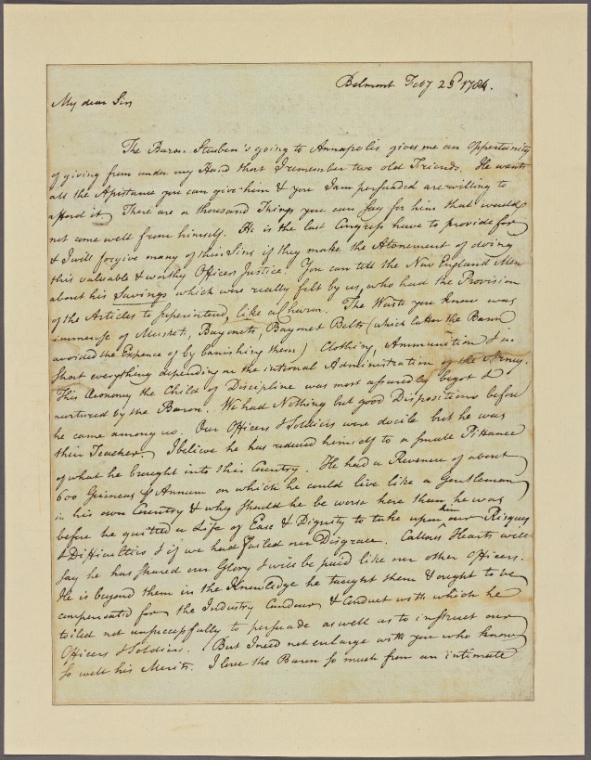 Belmont Feby 23d 1784.
My dear Sir
The Baron Steuben's going to Annapolis gives me an Opportunity
of giving from under my Hand that I remember two old Friends. He wants
all the Assistance you can give him & you I am persuaded are willing to
afford it. There are a thousand Things you can say for him that would
not come well from himself. He is the last Congress have to provide for
& I will forgive many of their Sins if they make the Atonement of doing
this valuable & worthy Officer Justice. You can tell the New England Men
about his Savings which were really felt by us, who had the Provision
of the Articles to superintend, like a Charm. The Waste you know was
immense of Muskets, Bayonets, Bayonet Belts (which latter the Baron
avoided the Expence of by banishing them) Clothing, Ammunition & in
short every thing depending on the internal Administration of the Army.
This Œconomy the Child of Discipline was most assuredly begot &
nurtured by the Baron. We had Nothing but good Dispositions before
he came among us. Our Officers & Soldiers were docile but he was
their Teacher. I believe he has reduced himself to a small Pittance
of what he brought into this Country. He had a Revenue of about
600 Guineas P Annum on which he could live like a Gentleman
in his own Country & why should he be worse here than he was
before he quitted a Life of Ease & Dignity to take upon him our Risques
& Difficulties & if we had failed our Disgrace. Callous Hearts will
say he has shared our Glory & will be paid like our other Officers.
He is beyond them in the Knowledge he taught them & ought to be
compensated for the Industry Candour & Conduct with which he
toiled not unsuccessfully to persuade as well as to instruct our
Officers & Soldiers. But I need not enlarge with you who know
so well his Merits. I love the Baron so much from an intimate